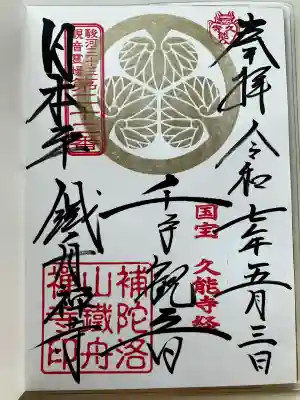 奉拝
令和七年五月三日
国宝 久能寺経
千手観音
駿河三十三ヶ所
観音霊場第二十二番
日本平
鐵舟禅寺
補陀洛
山鐵舟
禅寺印